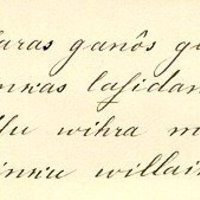 aras ganôs ga
nkas lasidan
Nu wihra m
inku willain